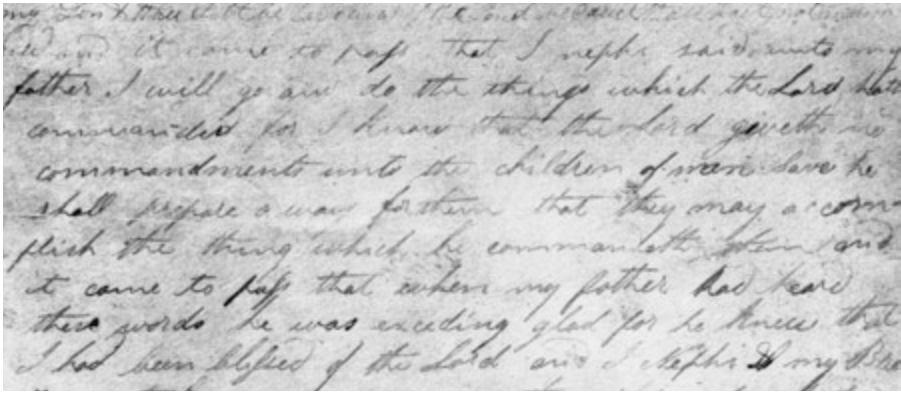 my Son thou shalt be favoured of the Lord because thou hast not murmur
ed and it came to pass that I nephi said unto my
father I will go and do the things which the Lord hath
commanded for I know that the Lord giveth no
commandments unto the children of men save he
shall prepare a way for them that they may accom-
plish the thing which he commandeth them and
it came to pass that when my father had heard
these words he was exceding glad for he knew that
I had been blessed of the Lord and I Nephi & my Bre